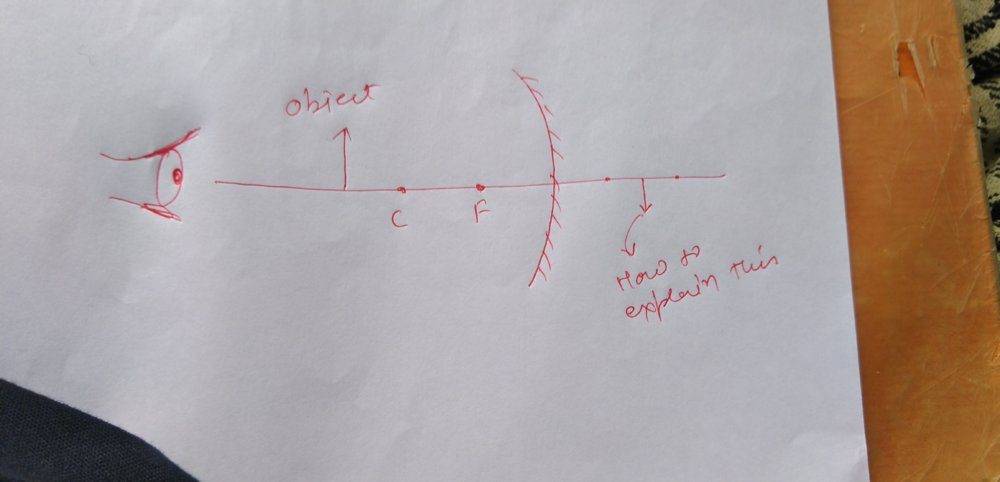 object
C
F
How to
explain this